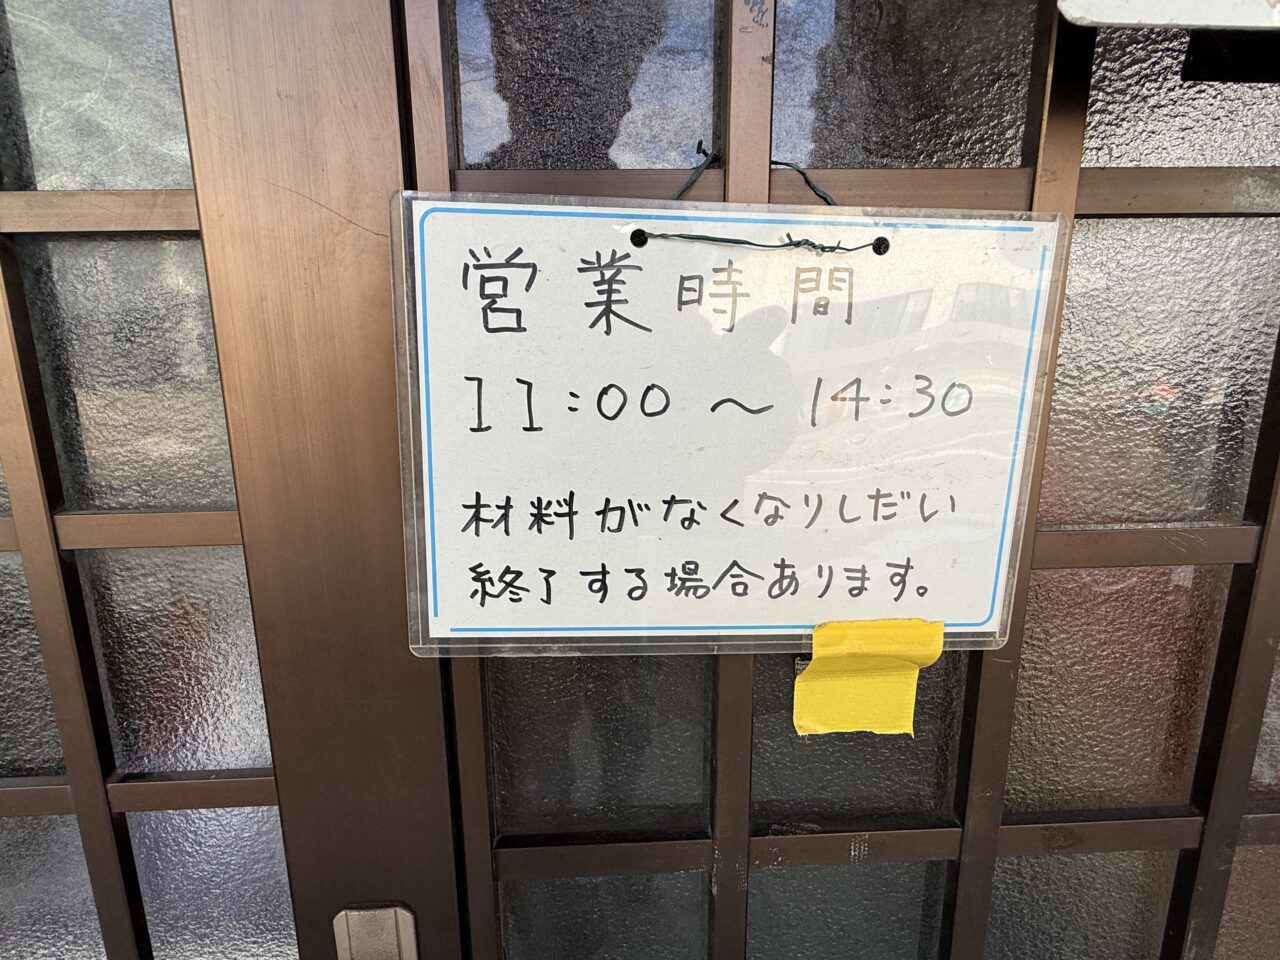 営業時間
11:00〜14:30
材料がなくなりしだい
終了する場合あります。